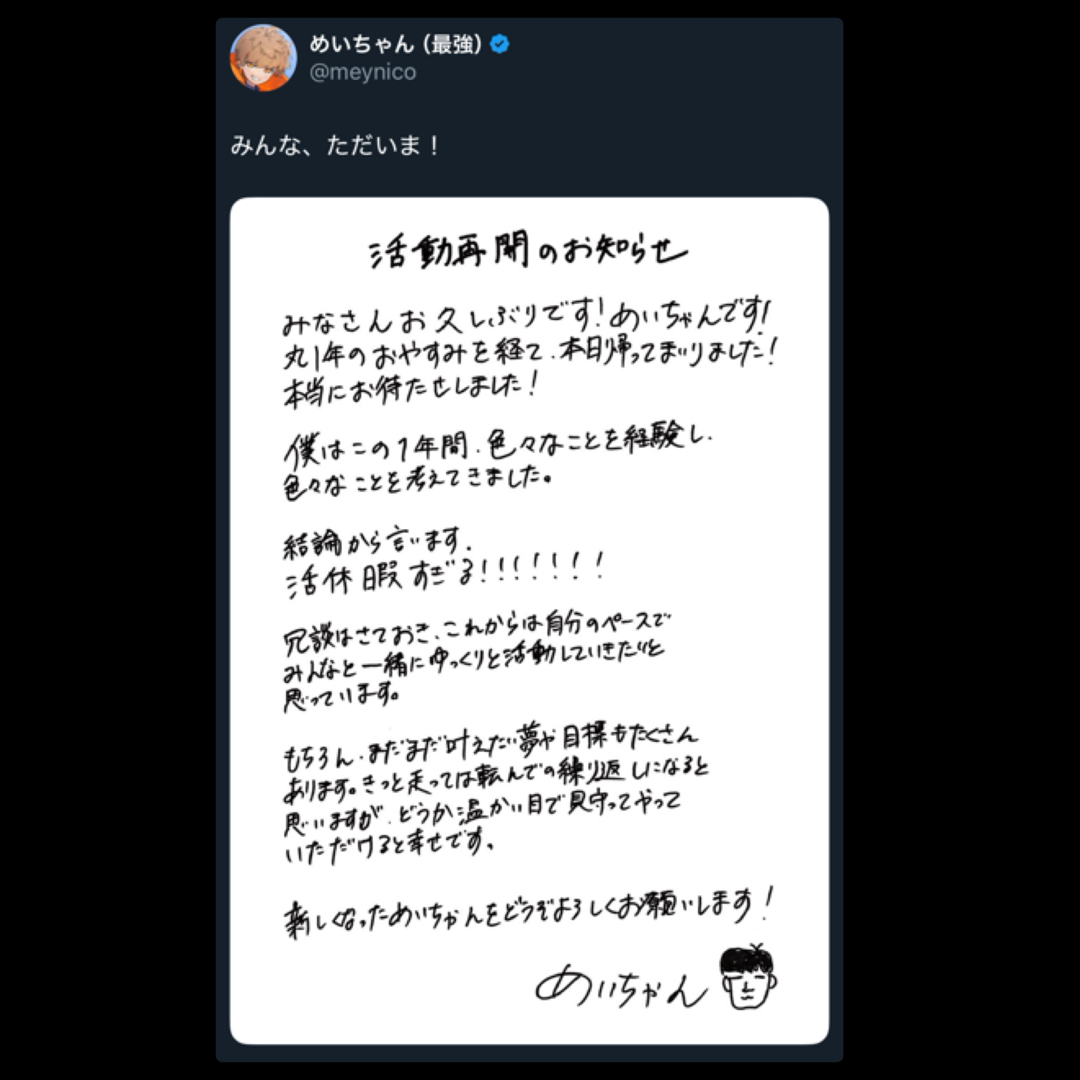 めいちゃん（最強）
@meynico
みんな、ただいま！
活動再開のお知らせ
みなさんお久しぶりです！めいちゃんです！
丸1年のおやすみを経て、本日帰ってまいりました！
本当にお待たせしました！
僕はこの1年間、色々なことを経験し、
色々なことを考えてきました。
結論から言います、
活休暇すぎる！！！！！！！
冗談はさておき、これからは自分のペースで
みんなと一緒にゆっくりと活動していきたいと
思っています。
もちろん、まだまだ叶えたい夢や目標もたくさん
あります。きっと走っては転んでの繰り返しになると
思いますが、どうか温かい目で見守ってやって
いただけると幸せです。
新しくなっためいちゃんをどうぞよろしくお願いします！
めいちゃん